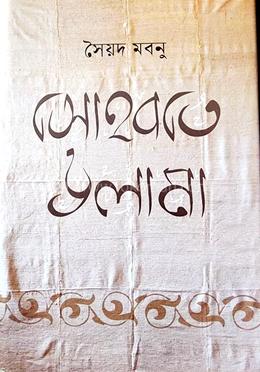 সৈয়দ মবনু
সোহবতে
উলামা